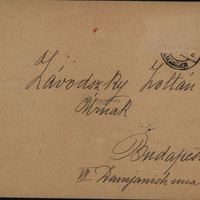 Závodszky Zoltán
Úrnak
Budapest
VII. Damjanich utca